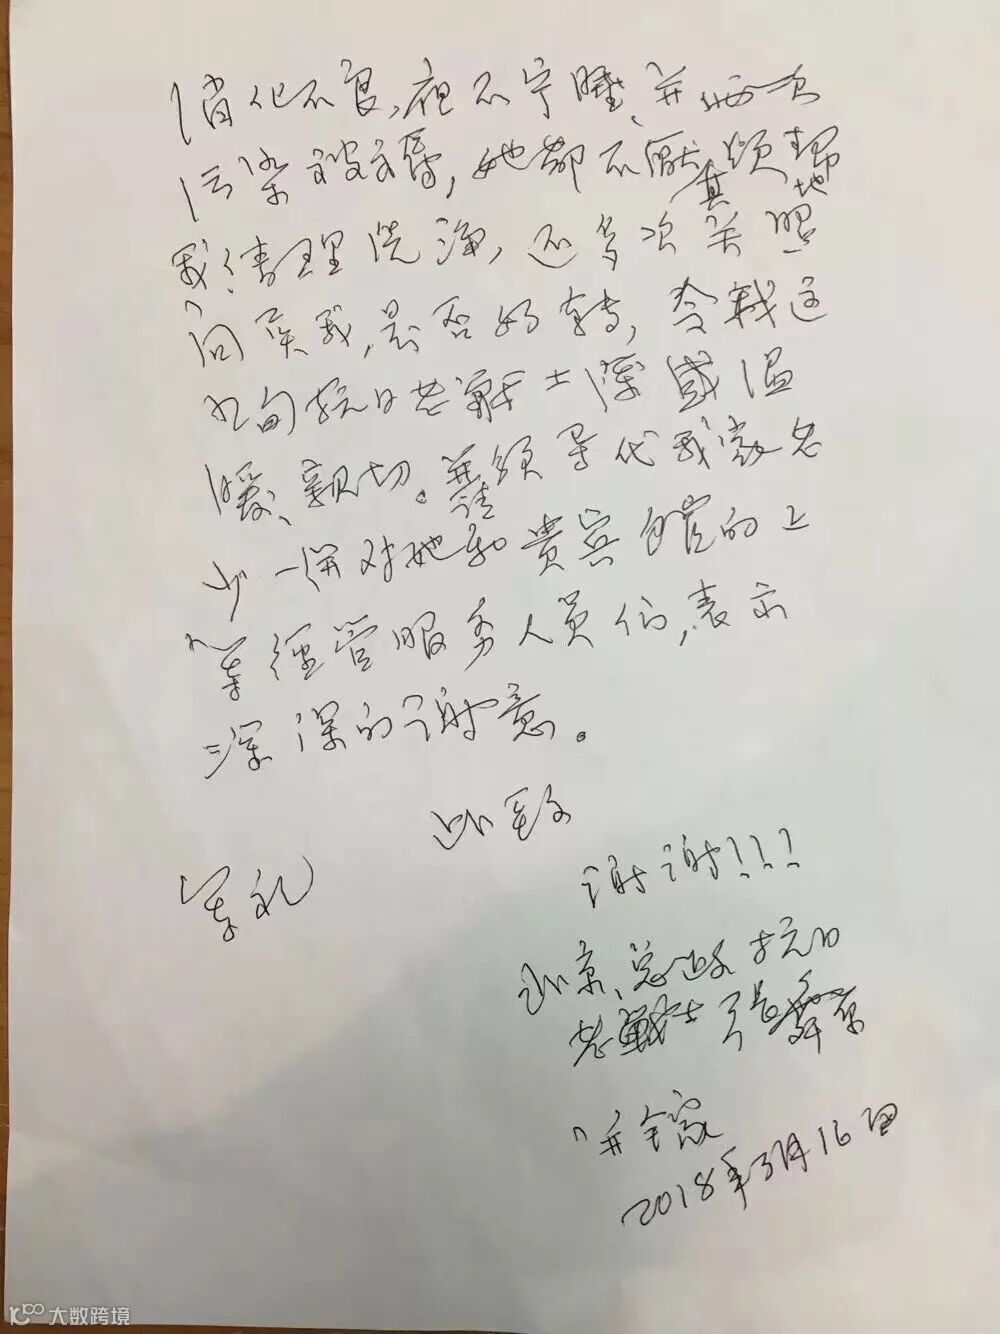 消化不良,夜不宁睡,并两次
污染被褥,她都不厌其烦地帮
我清理洗净,还多次关照
问候我,是否好转,令我这
九旬抗日老战士深感温
暖、亲切。并请领导代我家名
一併对她和贵宾馆的上
等经管服务人员们,表示
深深的谢意。
此致
军礼
谢谢!!!
北京、总政抗日
老战士 张
并全家
2018年3月16日
大数跨境